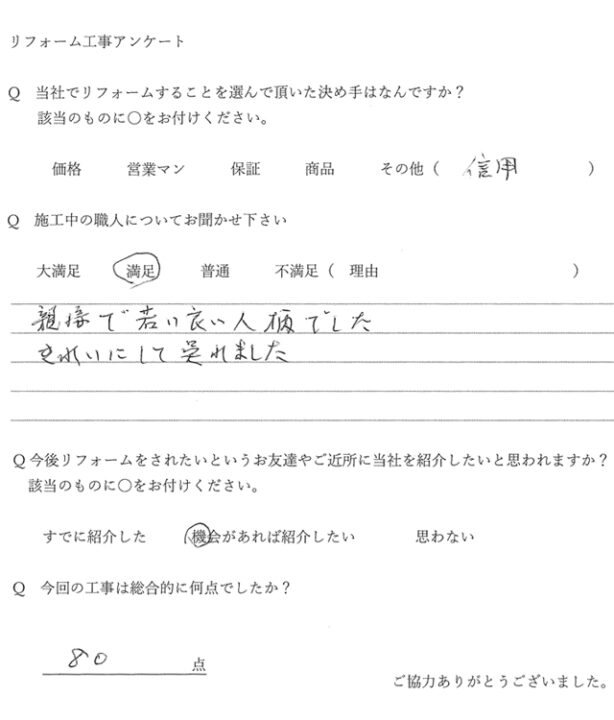 リフォーム工事アンケート
Q 当社でリフォームすることを選んで頂いた決め手はなんですか?
該当のものに〇をお付けください。
価格 営業マン 保証 商品 その他( 信用 )
Q 施工中の職人についてお聞かせ下さい
大満足 満足 普通 不満足( 理由 )
親様で若い良い人柄でした
きれいにして呉れました
Q 今後リフォームをされたいというお友達やご近所に当社を紹介したいと思われますか?
該当のものに〇をお付けください。
すでに紹介した 機会があれば紹介したい 思わない
Q 今回の工事は総合的に何点でしたか?
80 点
ご協力ありがとうございました。